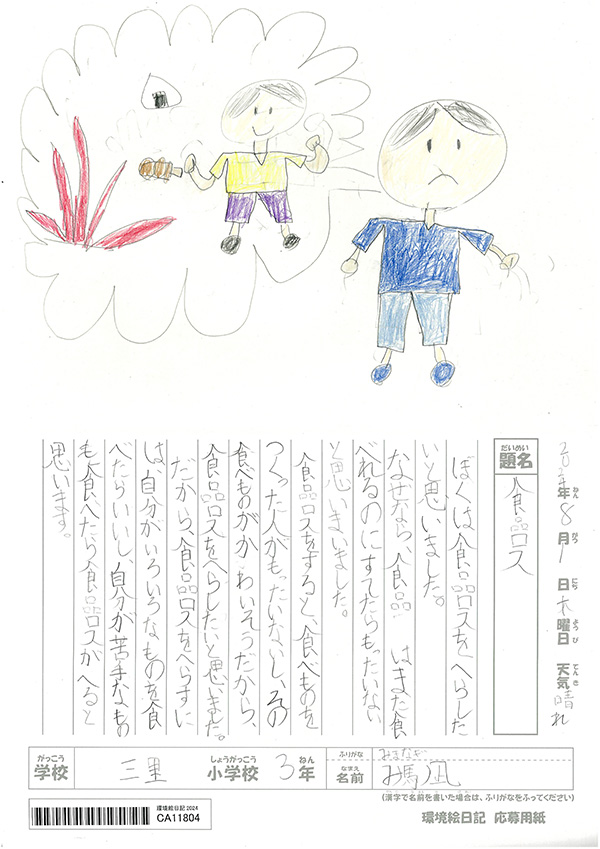 2024年8月1日木曜日 天気晴れ
だいめい
題名
食品ロス
ぼくは食品ロスをへらした
いと思いました。
なぜなら、食品 はまた食
べれるのにすてたらもったいない
と思いまいました。
食品ロスをすると、食べものを
つくった人がもったいないし、その
食べものがかわいそうだから、
食品ロスをへらしたいと思いました。
だから、食品ロスをへらすに
は自分がいろいろなものを食
べたらいいし、自分が苦手なもの
も食べたら食品ロスがへると
思います。
がっこう しょうがっこう ねん ふりがな
学校 三里 小学校 3年 なまえ 名前 凪
(漢字で名前を書いた場合は、ふりがなをふってください)
環境絵日記 2024
CA11804
環境絵日記 応募用紙